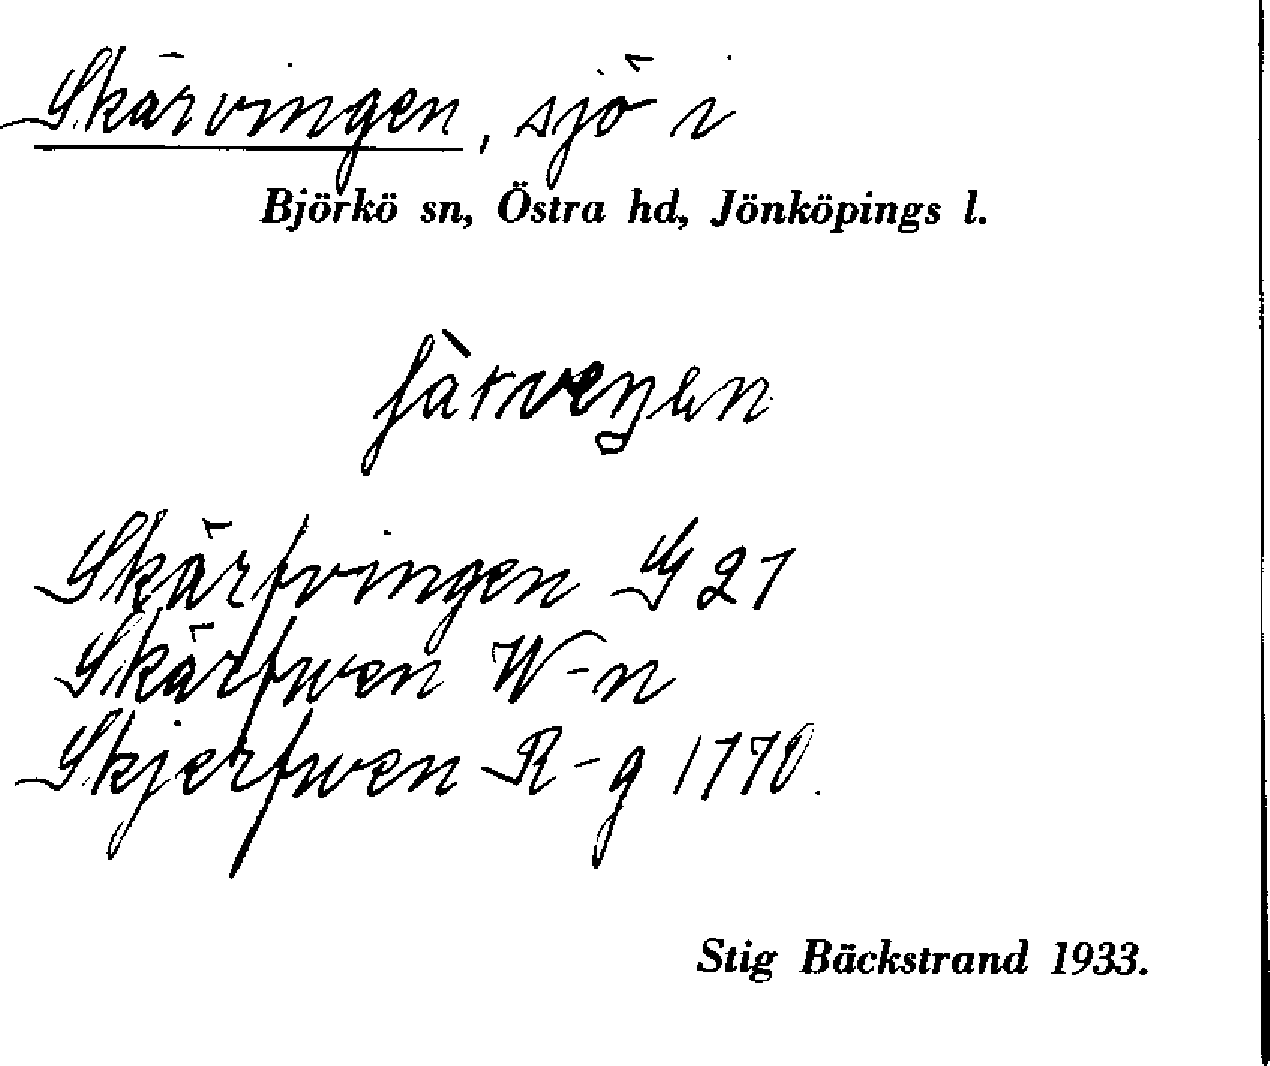 Skärvingen, sjö i
Björkö sn, Östra hd, Jönköpings l.
Skärfvingen G 21
Skärfwen W-n
Skjerfwen R-g 1770.
Stig Bäckstrand 1933.